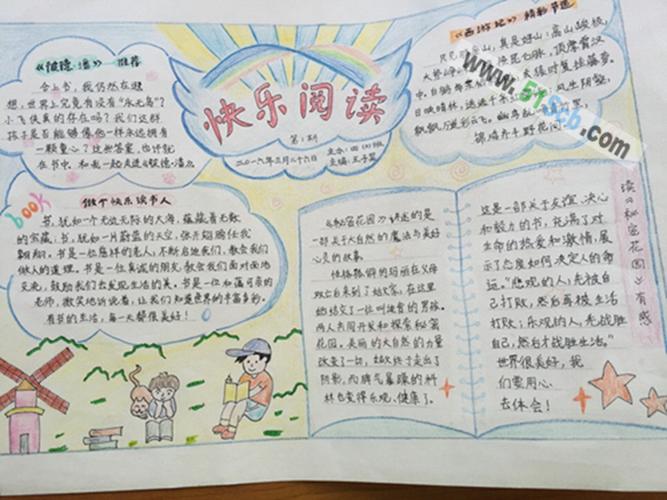 《彼德·潘》——推荐
合上书，我仍然在遐
想，世界上究竟有没有“永无岛”？
小飞侠真的存在吗？我们这群
孩子是否能够像他一样永远拥有
一颗童心？这些答案，也许就
在书中，和我一起走进《彼德·潘》。
快乐阅读
第1期
二〇一六年三月二十六日
主办：四(3)班
主编：王子
《西游记》精彩节选
真是好山：高山峻极，
大势峥
昆仑脉，顶摩霄汉
中。
日映晴林，
飘飘
book
做个快乐读书人
书，犹如一个无边无际的大海，蕴藏着无数
的宝藏；书，犹如一片蔚蓝的天空，张开翅膀任我
翱翔。书是一位慈祥的老人，不断启迪我们，教会我们
做人的道理。书是一位真诚的朋友，教会我们面对面地
交流，鼓励我们去发现生活的美。书是一位和蔼可亲的
老师，微笑地诉说着，让我们知道世界的丰富多彩。
有书的生活，每一天都很美好！
《秘密花园》讲述的是
一部关于大自然的魔法与美好
心灵的故事。
性格孤僻的玛丽在父母
双亡后来到了姑父家，在这里
她结交了一位叫迪肯的男孩。
两人共同开发和探索秘密
花园。美丽的大自然的力量
改变了一切，姑父终于走出了
阴影，而脾气暴躁的柯林
也变得乐观、健康了。
这是一部关于友谊、决心
和毅力的书，充满了对
生命的热爱和激情，展
示了态度如何决定人的命
运。“悲观的人，先被自
己打败，然后再被生活
打败；乐观的人，先战胜
自己，然后才战胜生活。”
世界很美好，我
们要用心
去体会！
读《秘密花园》有感
www.51scb.com